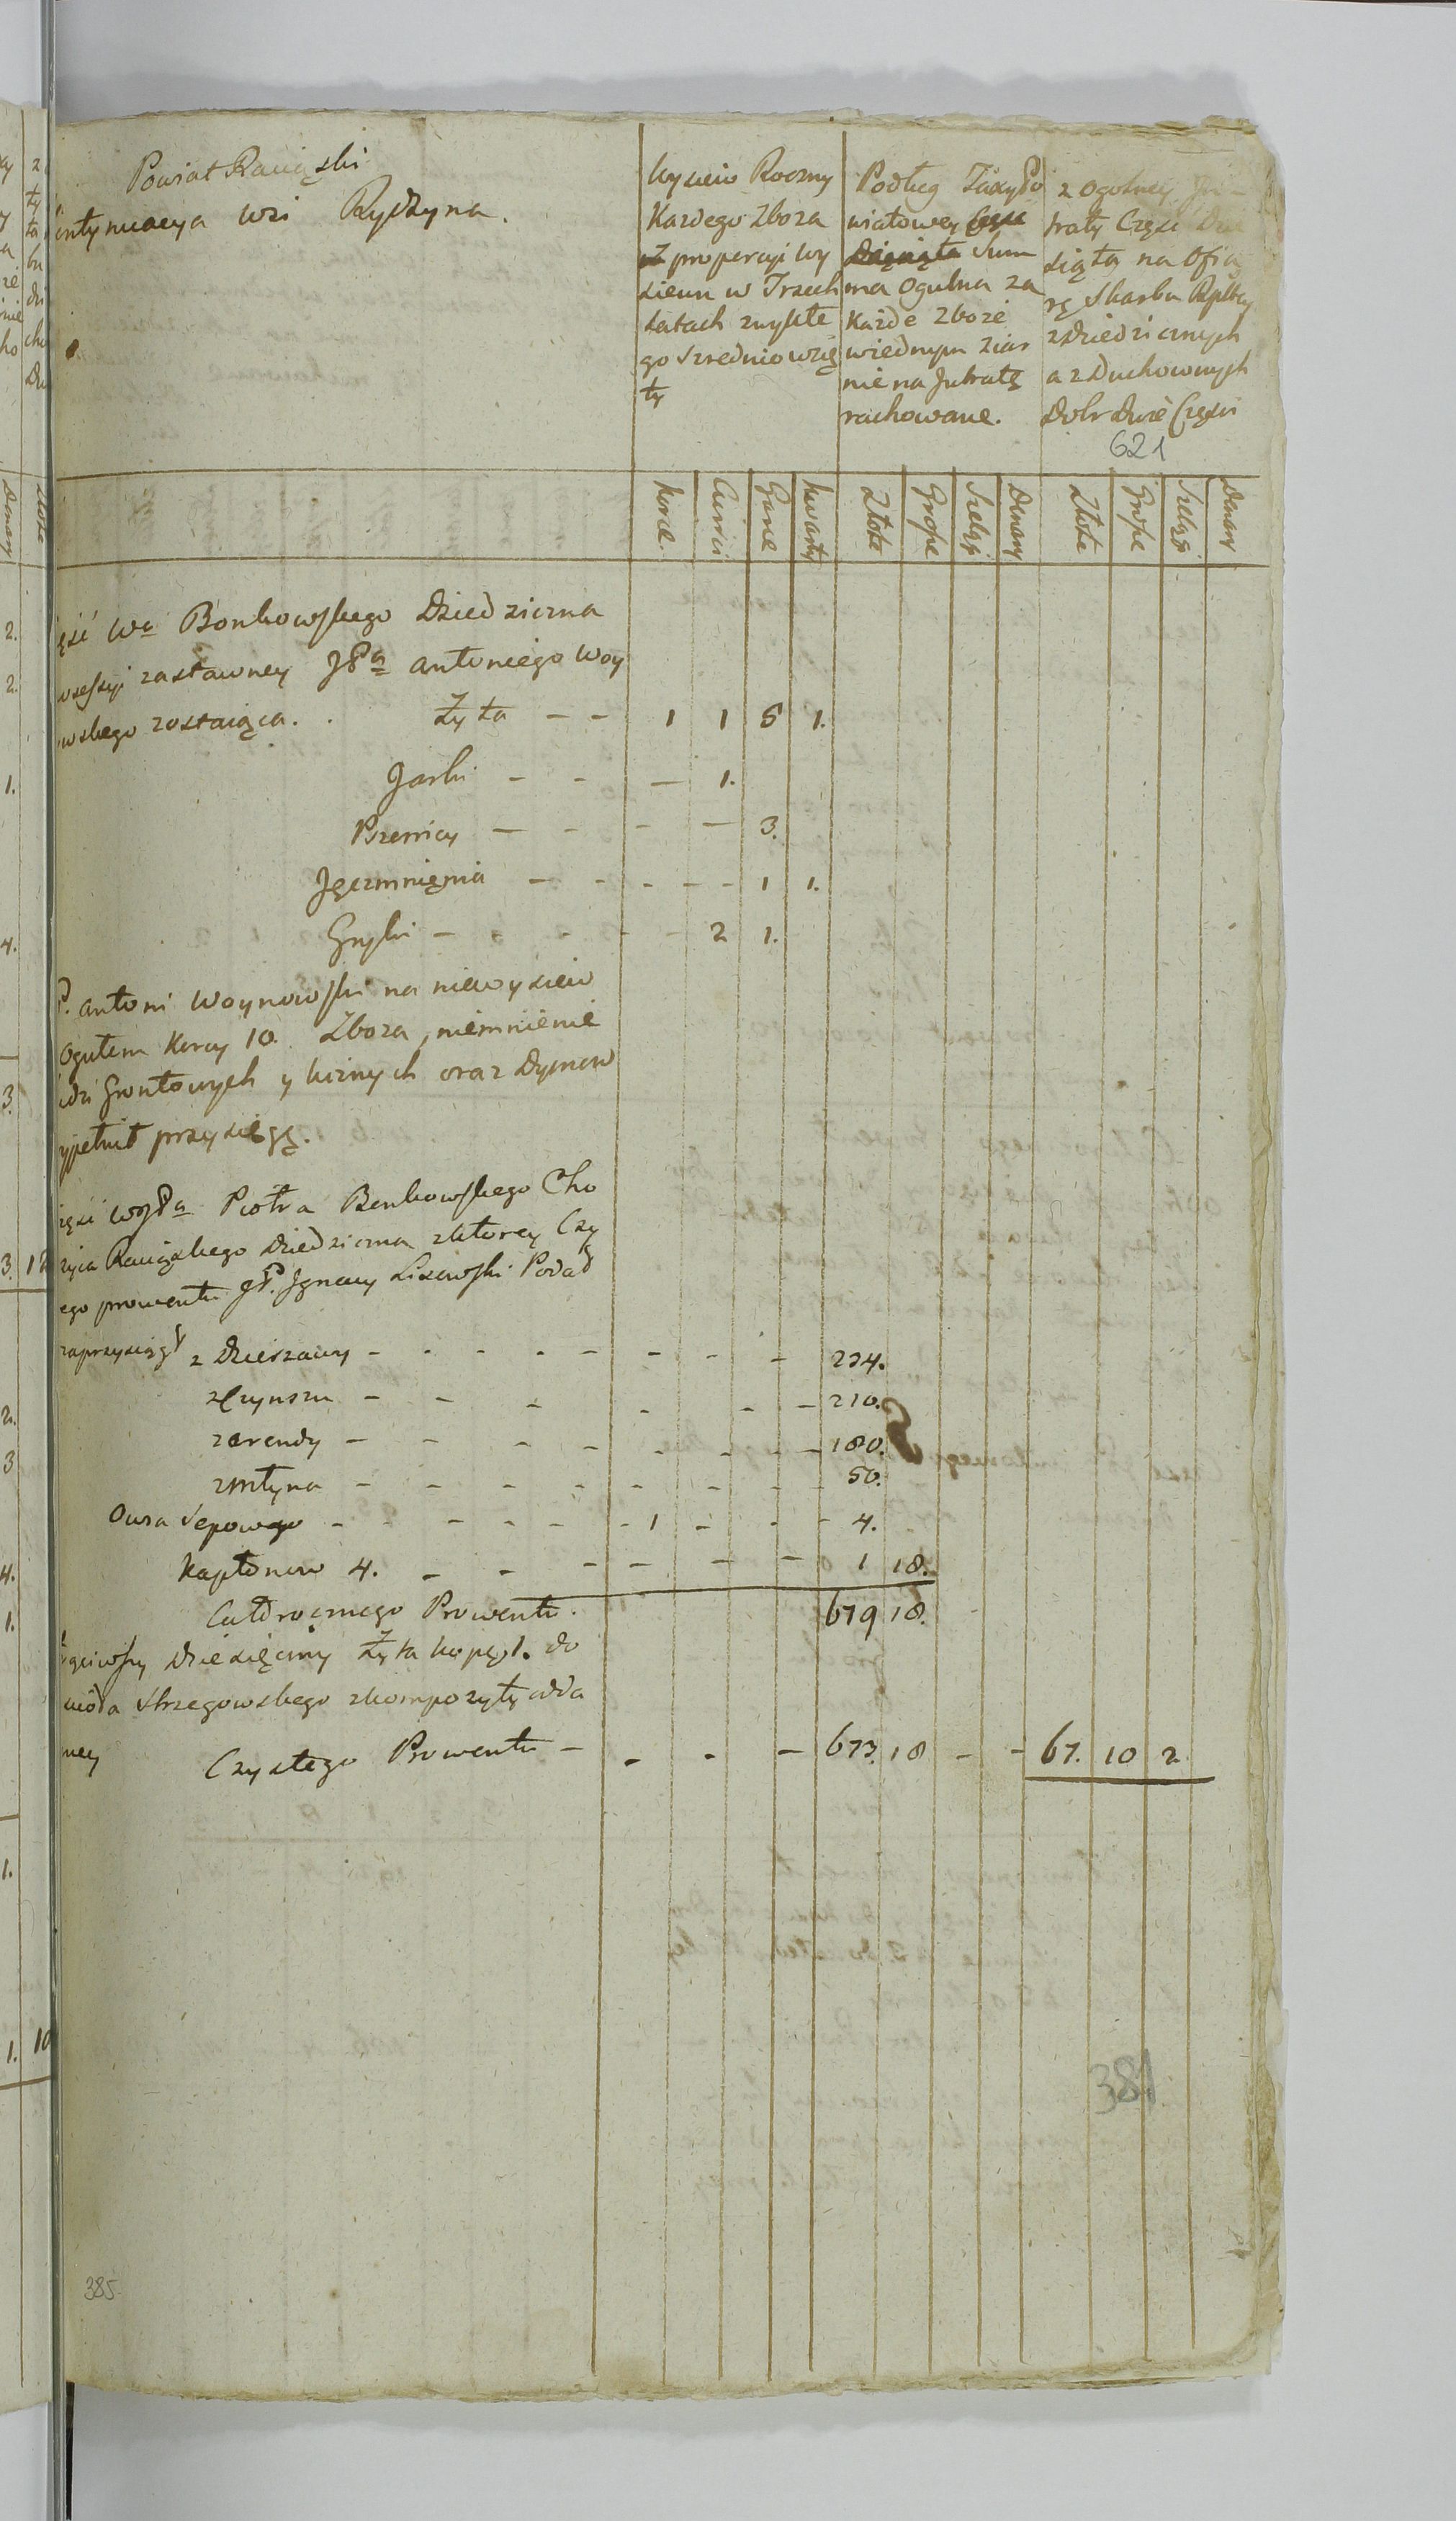 Powiat Raciąski
ontynuacya wsi Rydzyna.
Wysiew Roczny
Każdego Zboza
z proporcyi wy
siewu w Trzech
Latach zwykłe
go srzednio wzię
ty
Podług Taxy Po
wiatowey Częsc
Dziąsięta Sum
ma Ogulna za
Każde Zboże
wiednym ziar
nie na Jntratę
rachowane.
z Ogolney Jn
traty Częsc Dzie
siąta na Ofia
rę Skarbu Rpltey
z Dziedzicznych
a z Duchownych
Dobr Dwie Częsci
621
Korce Cwierci Garce Kwarty Złote Grosze Szelągi Denary Złote Grosze Szelągi Denary
ęść Wo Bonkowskiego Dziedziczna
ossessyi zastawney JPa Antoniego Woy
owskiego zostaiąca. Żyta - - 1 1 5 1.
Jarki - - - 1.
Pszenicy - - - - 3.
Jęczmnięnia - - - - - 1 1.
Gryki - - - - - 2 1.
P. Antoni Woynowski na niewysiew
Ogułem Korcy 10. Zboza, niemnienie
udzi Grontowych y luznych oraz Dymow
ypełnił przysięgę.
zęsć WJPa Piotra Bonkowskiego Cho
rzyca Raciąskiego Dziedziczna z ktorey Czy
ego prowentu JP. Jgnacy Lisowski Podał
zaprzysiągł z Dzierzawy - - - - - - - - 234.
z Czynszu - - - - - - 210.
z Arendy - - - - - - - - 180.
z Młyna - - - - - - - - 50.
Owsa Sepowego - - - - - - 1 - - - 4.
Kapłonow 4. - - - - - - 1 18.
Całorocznego Prowentu. 679 18.
ąciwszy Dziesięciny Żyta kopę 1. do
cioła Strzegowskiego z kompozyty odda
ney Czystego Prowentu - - - - 673. 18 - - 67. 10 2.
381
385